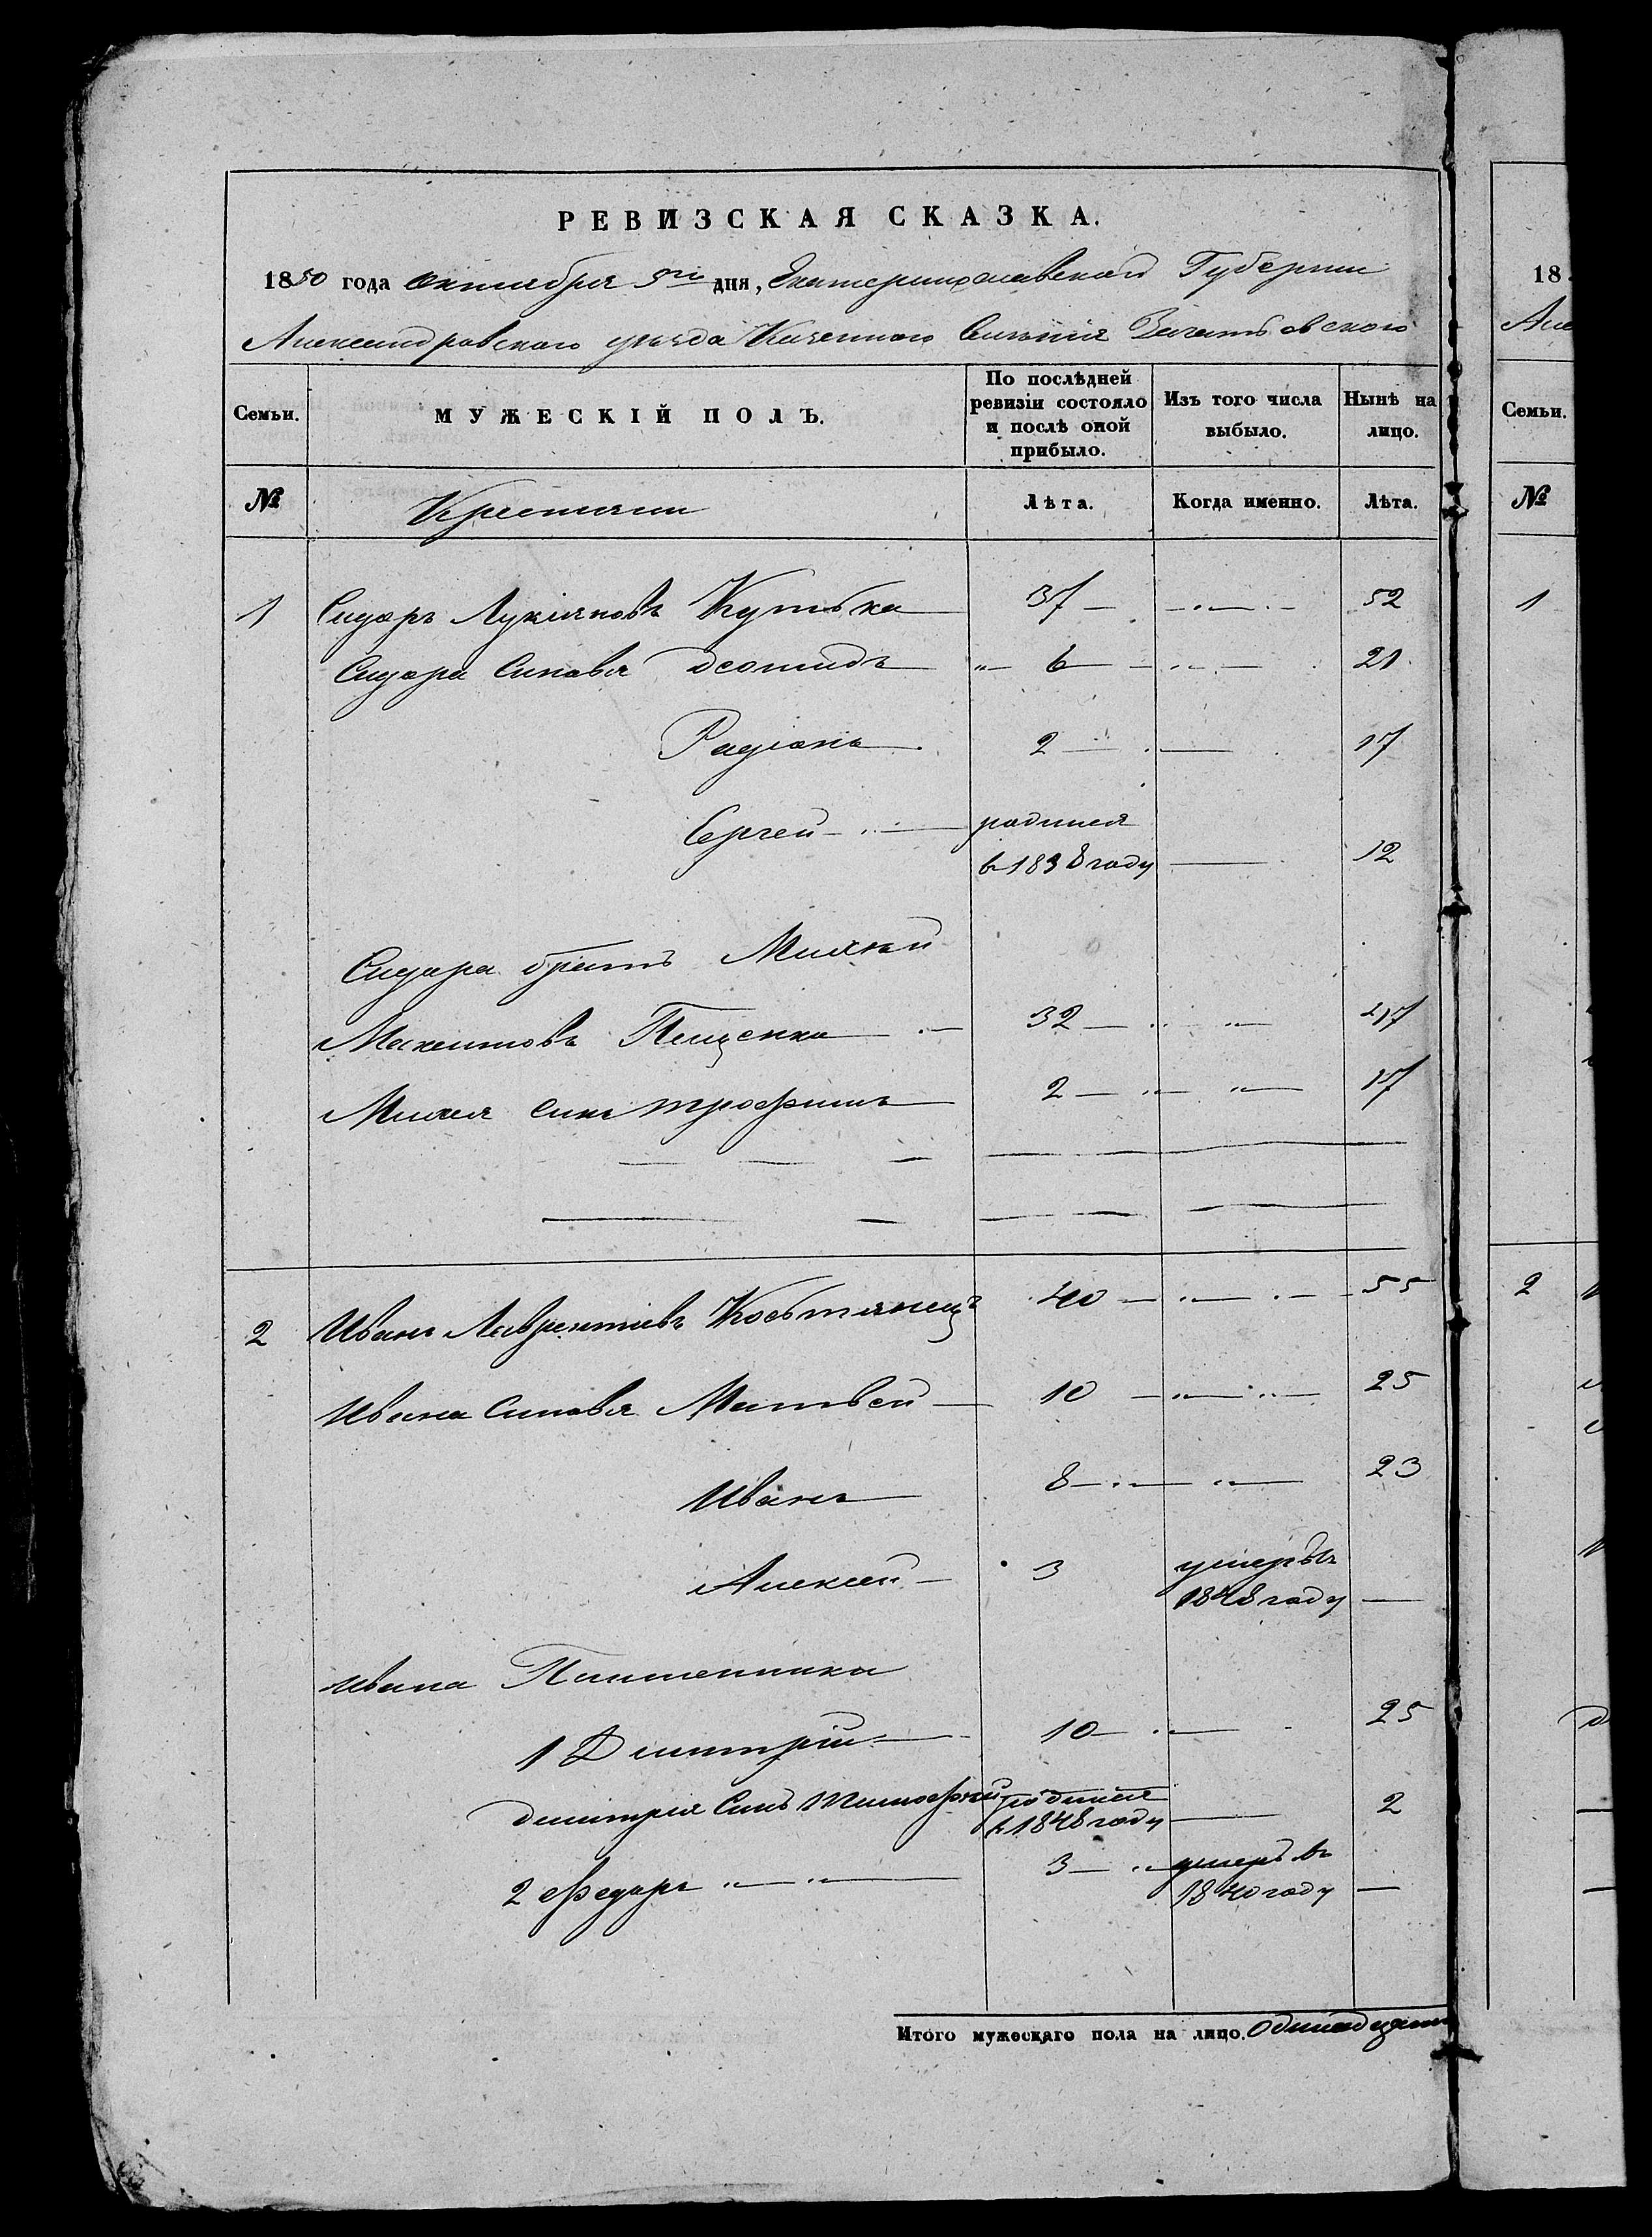 РЕВИЗСКАЯ СКАЗКА.
1850 года октября 5го дня, Екатеринославской Губернии
Александровского уезда Казенного Селѣния
Семьи. МУЖЕСКІЙ ПОЛЪ. По послѣдней ревизіи состояло и послѣ оной прибыло. Изъ того числа выбыло. Нынѣ на лицо.
№ Крестьяни Лѣта. Когда именно. Лѣта.
1 Сидоръ Лукіяновъ Кутъка 37 52
Сидора Синовя Деомидъ 6 21
Радіонъ 2 17
Сергей родился в 1838 году 12
Сидора братъ Михей
Максимовъ Пещенко 32 47
Михея Синъ трофимъ 2 17
2 Иванъ Лаврентіевъ Костянецъ 40 55
Ивана Синовя Матвей 10 25
Иванъ 8 23
Алексей 3 умеръ въ 1848 году
Ивана Племенники
1 Дмитрій 10 25
Дмитрія Синъ Тимофей родился в 1848 году 2
2 Федоръ 3 умеръ въ 1840 году
Итого мужескаго пола на лицо. Одинадцать
18
Але
Семьи.
№
1
2